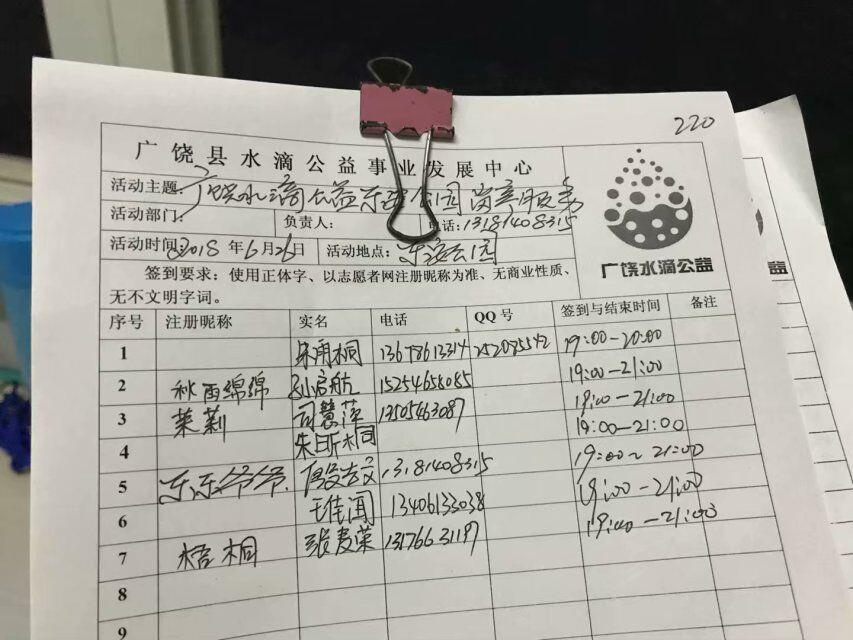 220
广饶县水滴公益事业发展中心
活动主题: 广饶水滴公益乐安公园
活动部门: 负责人: 电话:13181408315
活动时间: 2018 年 6 月 26 日 活动地点: 乐安公园
广饶水滴公益
签到要求:使用正体字、以志愿者网注册昵称为准、无商业性质、
无不文明字词。
序号 注册昵称 实名 电话 QQ 号 签到与结束时间 备注
1 朱雨桐 13678613314 252085542 19:00-20:00
2 秋雨绵绵 孙启航 15254658085 19:00-21:00
3 茉莉 司慧萍 13505463087 19:00-21:00
4 朱昕桐 19:00-21:00
5 乐乐爷爷 13181408315 19:00~21:00
6 王佳闻 13406133038 19:00-21:00
7 梧桐 张麦荣 13176631197 19:00-21:00
8
9